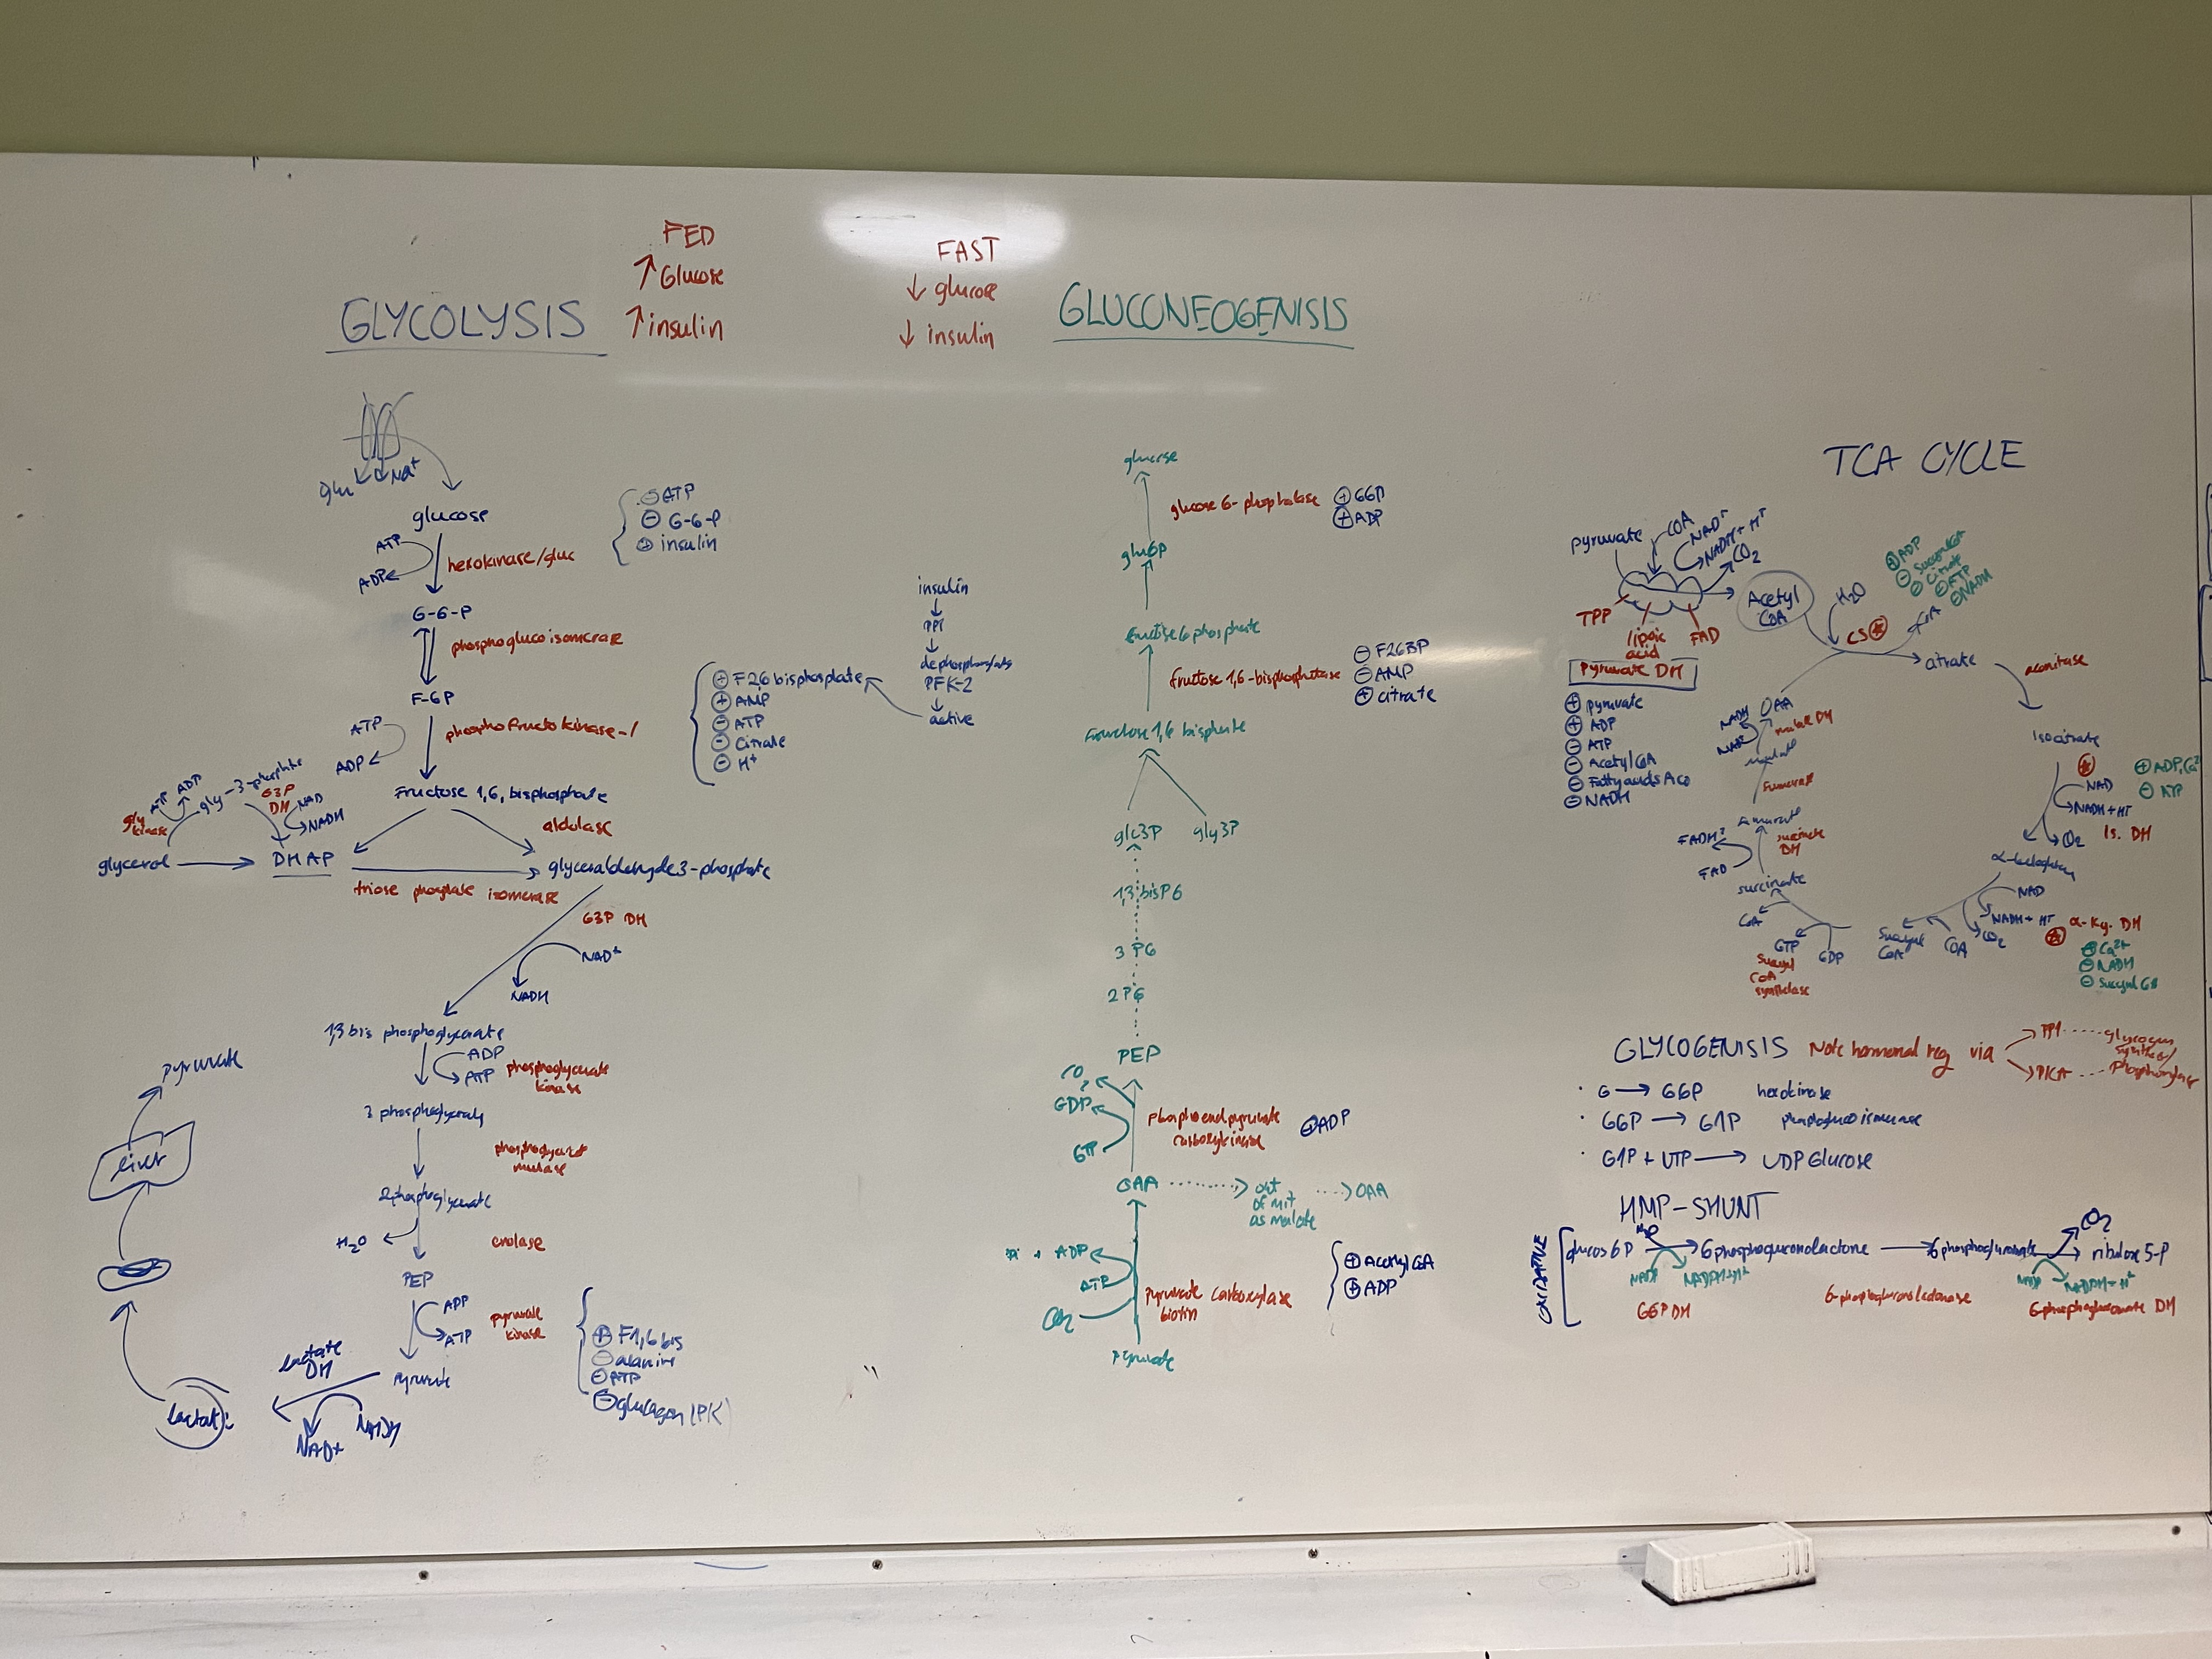 GLYCOLYSIS
FED
↑ Glucose
↑ insulin
FAST
↓ glucose
↓ insulin
GLUCONEOGENISIS
glu
Na+
glucose
ATP
ADP
hexokinase/gluc
⊖ ATP
⊖ G-6-P
⊕ insulin
G-6-P
phosphoglucoisomerase
F-6P
ATP
ADP
phosphofructokinase-1
⊕ F2,6 bisphosphate
⊕ AMP
⊖ ATP
⊖ Citrate
⊖ H+
insulin
PP1
PFK-2
active
Fructose 1,6, bisphosphate
aldolase
gly kinase
ATP
ADP
gly-3-phosphate
G3P
DH
NAD
NADH
glycerol
DHAP
triose phosphate isomerase
glyceraldehyde 3-phosphate
G3P DH
NAD+
NADH
1,3 bis phosphoglycerate
ADP
ATP
phosphoglycerate
kinase
mutase
2phosphoglycerate
H2O
enolase
PEP
ADP
ATP
pyruvate
kinase
⊕ F1,6 bis
⊖ alanine
⊖ ATP
⊖ glucagon (PK)
pyruvate
lactate
DH
NAD+
NADH
lactate
liver
pyruvate
glucose
glucose 6-phosphatase
⊕ G6P
⊕ ADP
glu6p
fructose 6 phosphate
fructose 1,6-bisphosphatase
⊖ F26BP
⊖ AMP
⊕ citrate
glc3P
gly3P
1,3 bisPG
3 PG
2 PG
PEP
CO2
GDP
GTP
carboxykinase
⊕ADP
OAA
out
of mit
as malate
OAA
ADP
ATP
CO2
Pyruvate carboxylase
biotin
⊕ Acetyl CoA
⊕ ADP
Pyruvate
TCA CYCLE
pyruvate
COA
NAD+
NADH + H+
CO2
TPP
lipoic
acid
FAD
Pyruvate DH
⊕ pyruvate
⊕ ADP
⊖ ATP
⊖ Acetyl CoA
⊖ NADH
Acetyl
COA
H2O
CS
⊕ ADP
⊖ Succinyl CoA
⊖ Citrate
⊖ ATP
⊖ NADH
citrate
aconitase
isocitrate
NAD
NADH + H+
Is. DH
⊖ ATP
NAD
NADH + H+
CO2
α-Kg. DH
⊕ Ca2+
⊖ NADH
COA
Succinyl
CoA
GTP
GDP
Succinyl
CoA
synthetase
CoA
succinate
FAD
succinate
DH
fumarate
fumarase
malate
malate DH
NADH
NAD
OAA
GLYCOGENISIS
Note hormonal reg via
PP1
PKA
glycogen
· G → G6P hexokinase
· G6P → G1P phosphoglucoisomerase
· G1P + UTP → UDP Glucose
HMP-SHUNT
OXIDATIVE
glucos 6P
H2O
NADP
NADPH+H+
G6P DH
6phosphogluconolactone
6-phosphogluconolactonase
NADP
NADPH+H+
CO2
ribulose 5-P
6-phosphogluconate DH